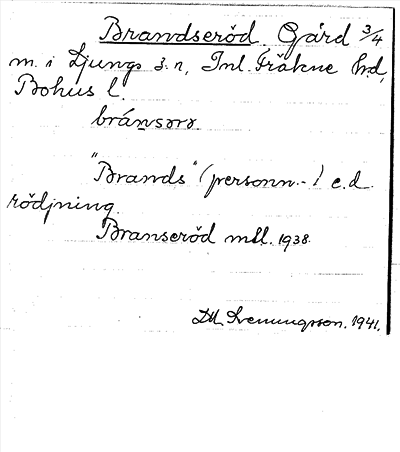 Brandseröd. Gård 3/4
m. i Ljungs s:n, Inl. Fräkne hd,
Bohus l.
"Brands" (personn.-) e.d.
rödjning.
Branseröd mtl. 1938.
1941.